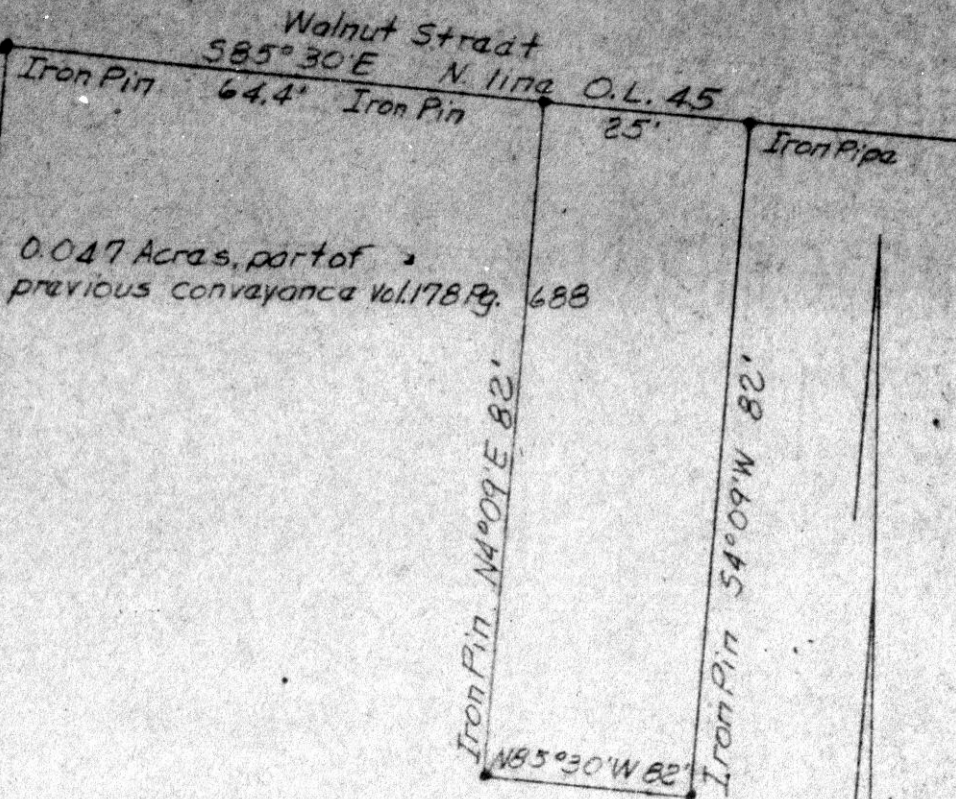 Walnut Street
S85°30'E N. line O.L. 45
Iron Pin 64.4' Iron Pin 25' Iron Pipe
0.047 Acres, part of
previous conveyance Vol. 178 Pg. 688
Iron Pin N4°09'E 82'
Iron Pin S4°09'W 82'
N85°30'W 82'